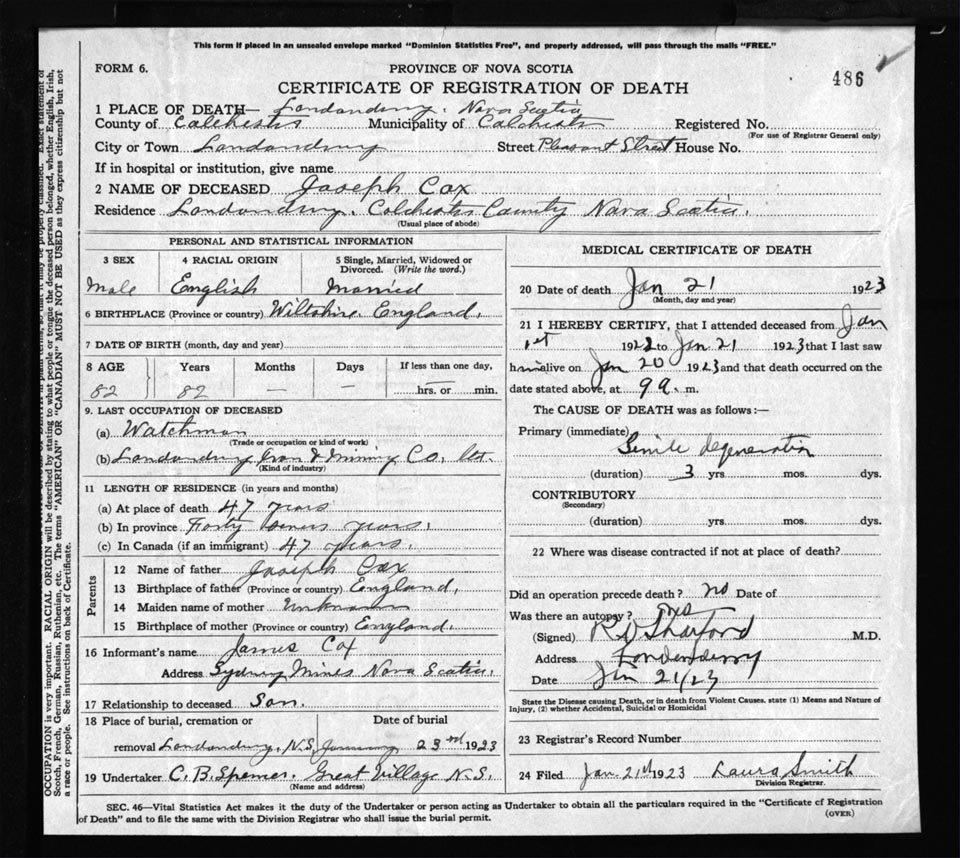 This form if placed in an unsealed envelope marked "Dominion Statistics Free", and properly addressed, will pass through the mails "FREE."
FORM 6.
PROVINCE OF NOVA SCOTIA
486
CERTIFICATE OF REGISTRATION OF DEATH
1 PLACE OF DEATH— Londonderry. Nova Scotia
County of Colchester Municipality of Colchester Registered No.
(For use of Registrar General only)
City or Town Londonderry Street Pleasant Street House No.
If in hospital or institution, give name
2 NAME OF DECEASED Joseph Cox
Residence Londonderry. Colchester County Nova Scotia.
(Usual place of abode)
PERSONAL AND STATISTICAL INFORMATION
3 SEX 4 RACIAL ORIGIN 5 Single, Married, Widowed or Divorced. (Write the word.)
Male English Married
6 BIRTHPLACE (Province or country) Wiltshire. England.
7 DATE OF BIRTH (month, day and year)
8 AGE Years Months Days If less than one day,
82 82 — — hrs. or min.
9. LAST OCCUPATION OF DECEASED
(a) Watchman
(Trade or occupation or kind of work)
(b) Londonderry Iron & Mining Co.
(Kind of industry)
11 LENGTH OF RESIDENCE (in years and months)
(a) At place of death 47 years
(b) In province Forty years.
(c) In Canada (if an immigrant) 47 years.
Parents
12 Name of father Joseph Cox
13 Birthplace of father (Province or country) England.
14 Maiden name of mother Unknown
15 Birthplace of mother (Province or country) England.
16 Informant's name James Cox
Address Sydney Mines Nova Scotia.
17 Relationship to deceased Son.
18 Place of burial, cremation or Date of burial
removal Londonderry. N.S. January 23rd 1923
19 Undertaker C. B. Spencer. Great Village N.S.
(Name and address)
MEDICAL CERTIFICATE OF DEATH
20 Date of death Jan 21 1923
(Month, day and year)
21 I HEREBY CERTIFY, that I attended deceased from Jan
1st 1922 to Jan 21 1923 that I last saw
him alive on Jan 20 1923 and that death occurred on the
date stated above, at 9 a. m.
The CAUSE OF DEATH was as follows:—
Primary (immediate)
Senile degeneration
(duration) 3 yrs. mos. dys.
CONTRIBUTORY
(Secondary)
(duration) yrs. mos. dys.
22 Where was disease contracted if not at place of death?
Did an operation precede death? no Date of
Was there an autopsy? no
(Signed) M.D.
Address Londonderry
Date Jan 21/23
State the Disease causing Death, or in death from Violent Causes. state (1) Means and Nature of
Injury, (2) whether Accidental, Suicidal or Homicidal
23 Registrar's Record Number
24 Filed Jan. 21st 1923 Laura Smith
Division Registrar.
SEC. 46—Vital Statistics Act makes it the duty of the Undertaker or person acting as Undertaker to obtain all the particulars required in the "Certificate of Registration
of Death" and to file the same with the Division Registrar who shall issue the burial permit.
(OVER)
OCCUPATION is very important. RACIAL ORIGIN will be described by stating to what people or tongue the deceased person belonged, whether English, Irish,
Scotch, French, German, Russian, Ruthenian, etc. The terms "AMERICAN" or "CANADIAN" MUST NOT BE USED as they express citizenship but not
a race or people. See instructions on back of Certificate.